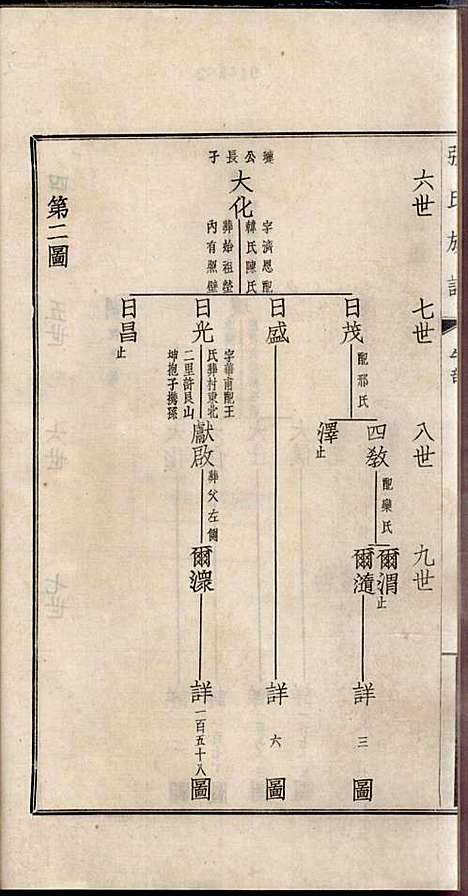 張氏族譜
六世
七世
八世
九世
璉公長子
大化
字濟恩配
韓氏陳氏
葬始祖塋
內有照壁
日茂
配邢氏
日盛
日光
字華甫配王
氏葬村東北
二里許艮山
坤抱子攜孫
日昌
止
四教
配欒氏
澤
止
獻啟
葬父左側
爾渭
止
爾澬
爾濴
詳三圖
詳六圖
詳一百五十八圖
第二圖